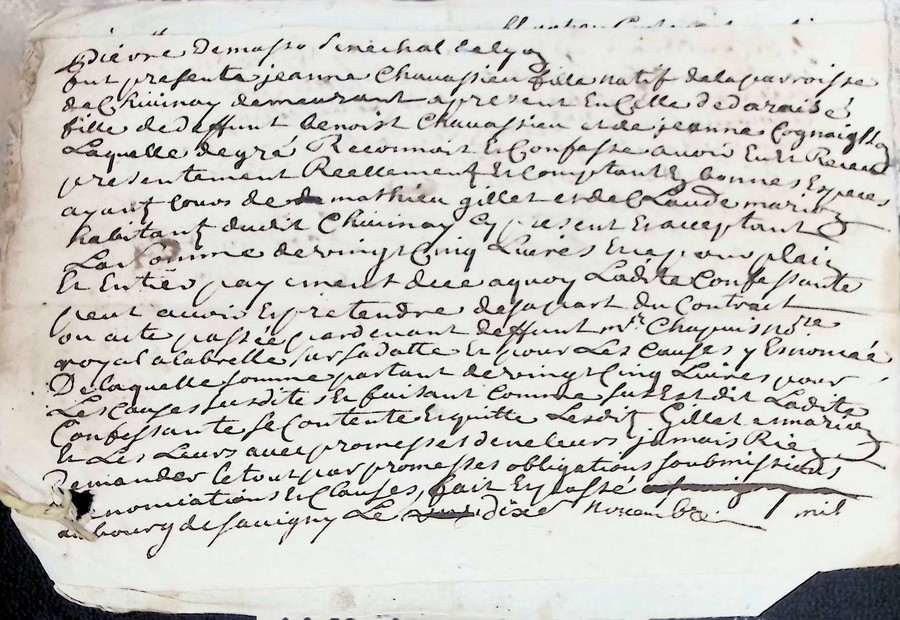 fut presente jeanne Chavassieu fille natif de la parroisse
de Chivinay demeurant a present En Celle de daraisé
fille de deffunt benoist Chavassieu et de jeanne Cognaist
Laquelle de gré Reconnoit Et Confesse avoir Eu Et Receu
presentement Reellement Et Comptant En bonnes Especes
ayant Cours de mathieu gillet et de Claude marion
habitant dudit Chivinay Cy present Et acceptant
La Somme de vingt Cinq Livres Et ce pour plain
Et Entier payement de ce a quoy Ladite Confessante
peut avoir Et pretendre de sa part du Contract
ou acte passée pardevant deffunt mr. Chapuis nore
royal a labrelle sur Sa datte Et pour Les Causes y Enoncée
De laquelle somme partant de vingt Cinq Livres pour
Les Causes susdites En faisant Comme sus Est dit Ladite
Confessante se Contente Et quitte Lesdit Gillet et marion
Et Les Leurs avec promesses de ne leurs jamais Rien
Demander Le tout par promesses obligations soubmissions
Renonciations Et Clauses, fait Et passé
au bourg de savigny Le dixe novembre mil